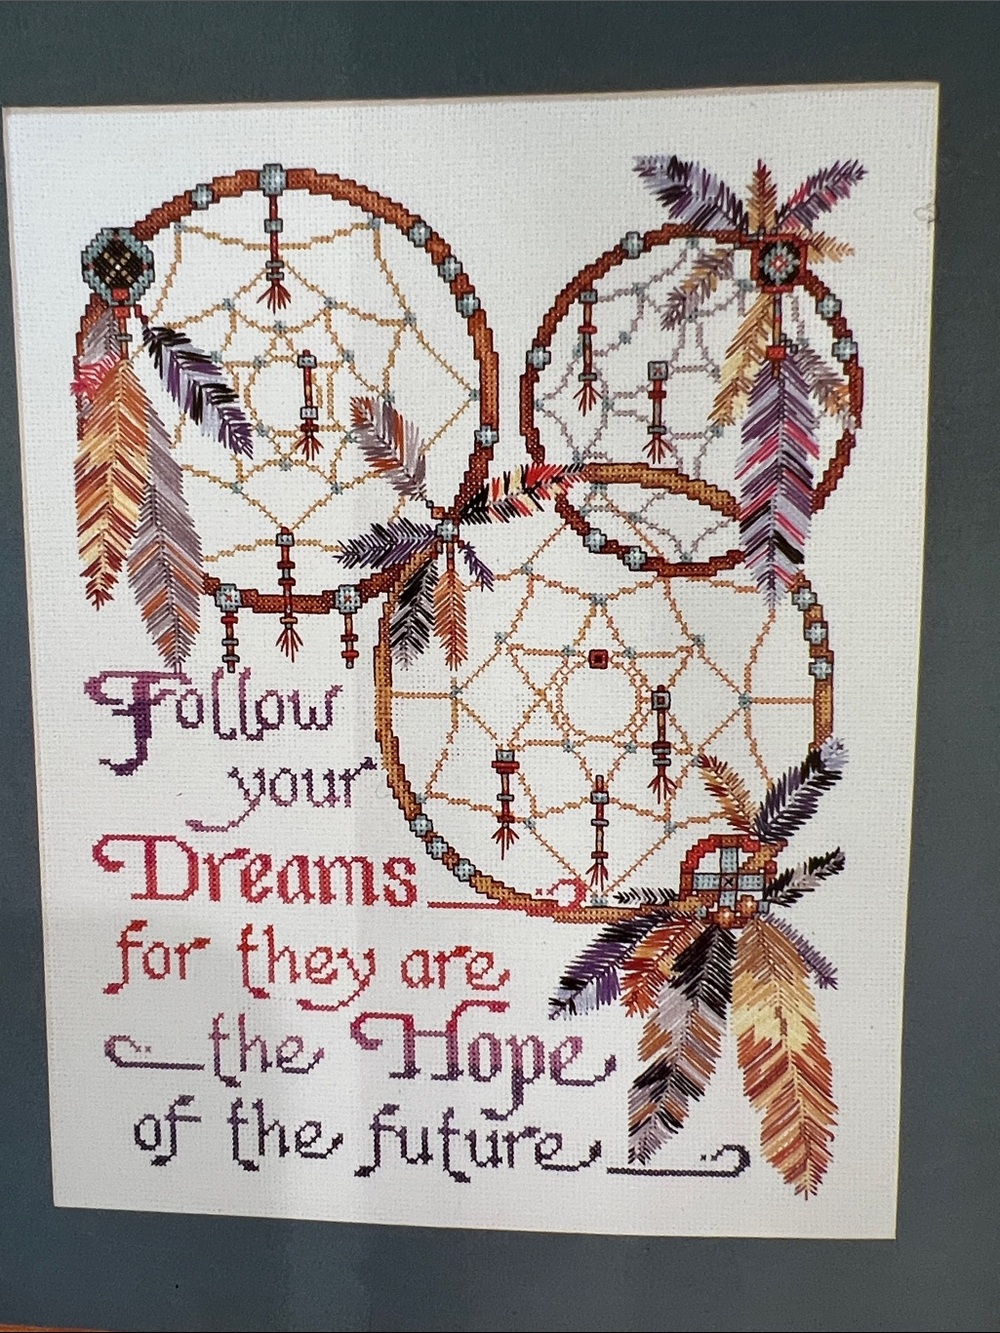 Follow
your
Dreams
for they are
the Hope
of the future